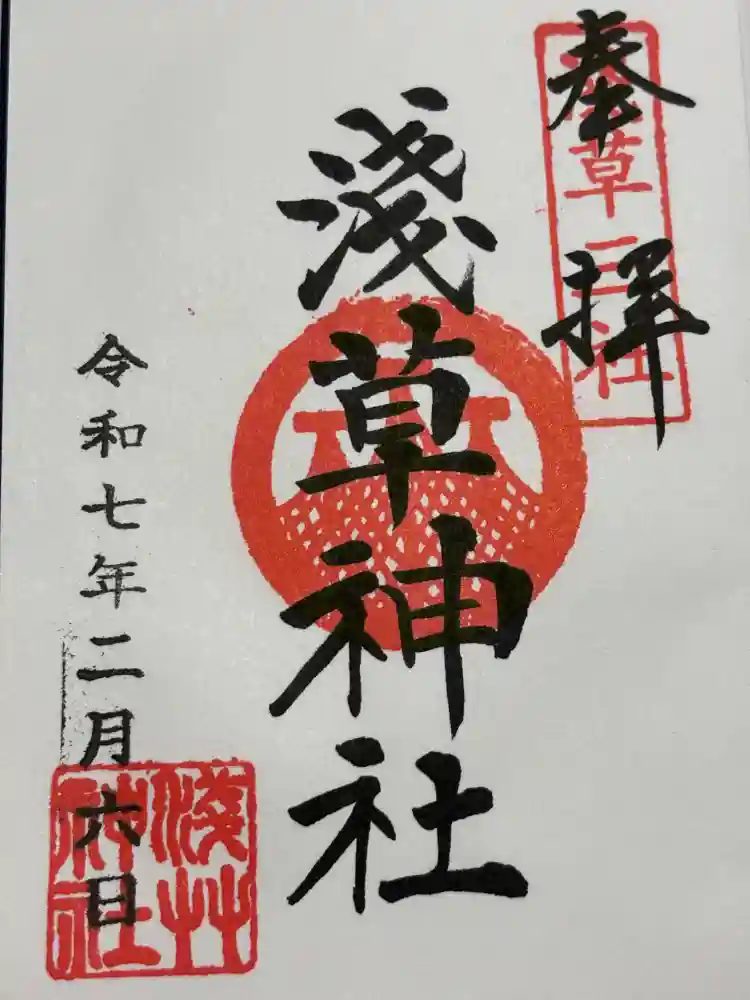 奉拝
浅草名社
淺草神社
令和七年二月六日
淺艸神社